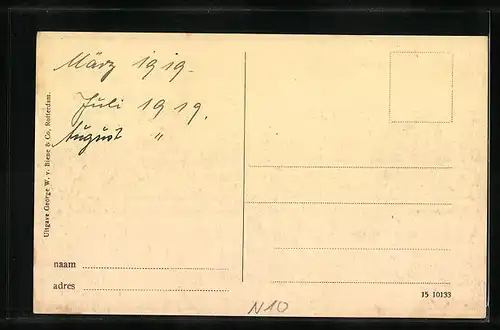 März 1919.
Juli 1919.
August "
Uitgave George W. v. Biene & Co, Rotterdam.
naam
adres
15 10133
N10